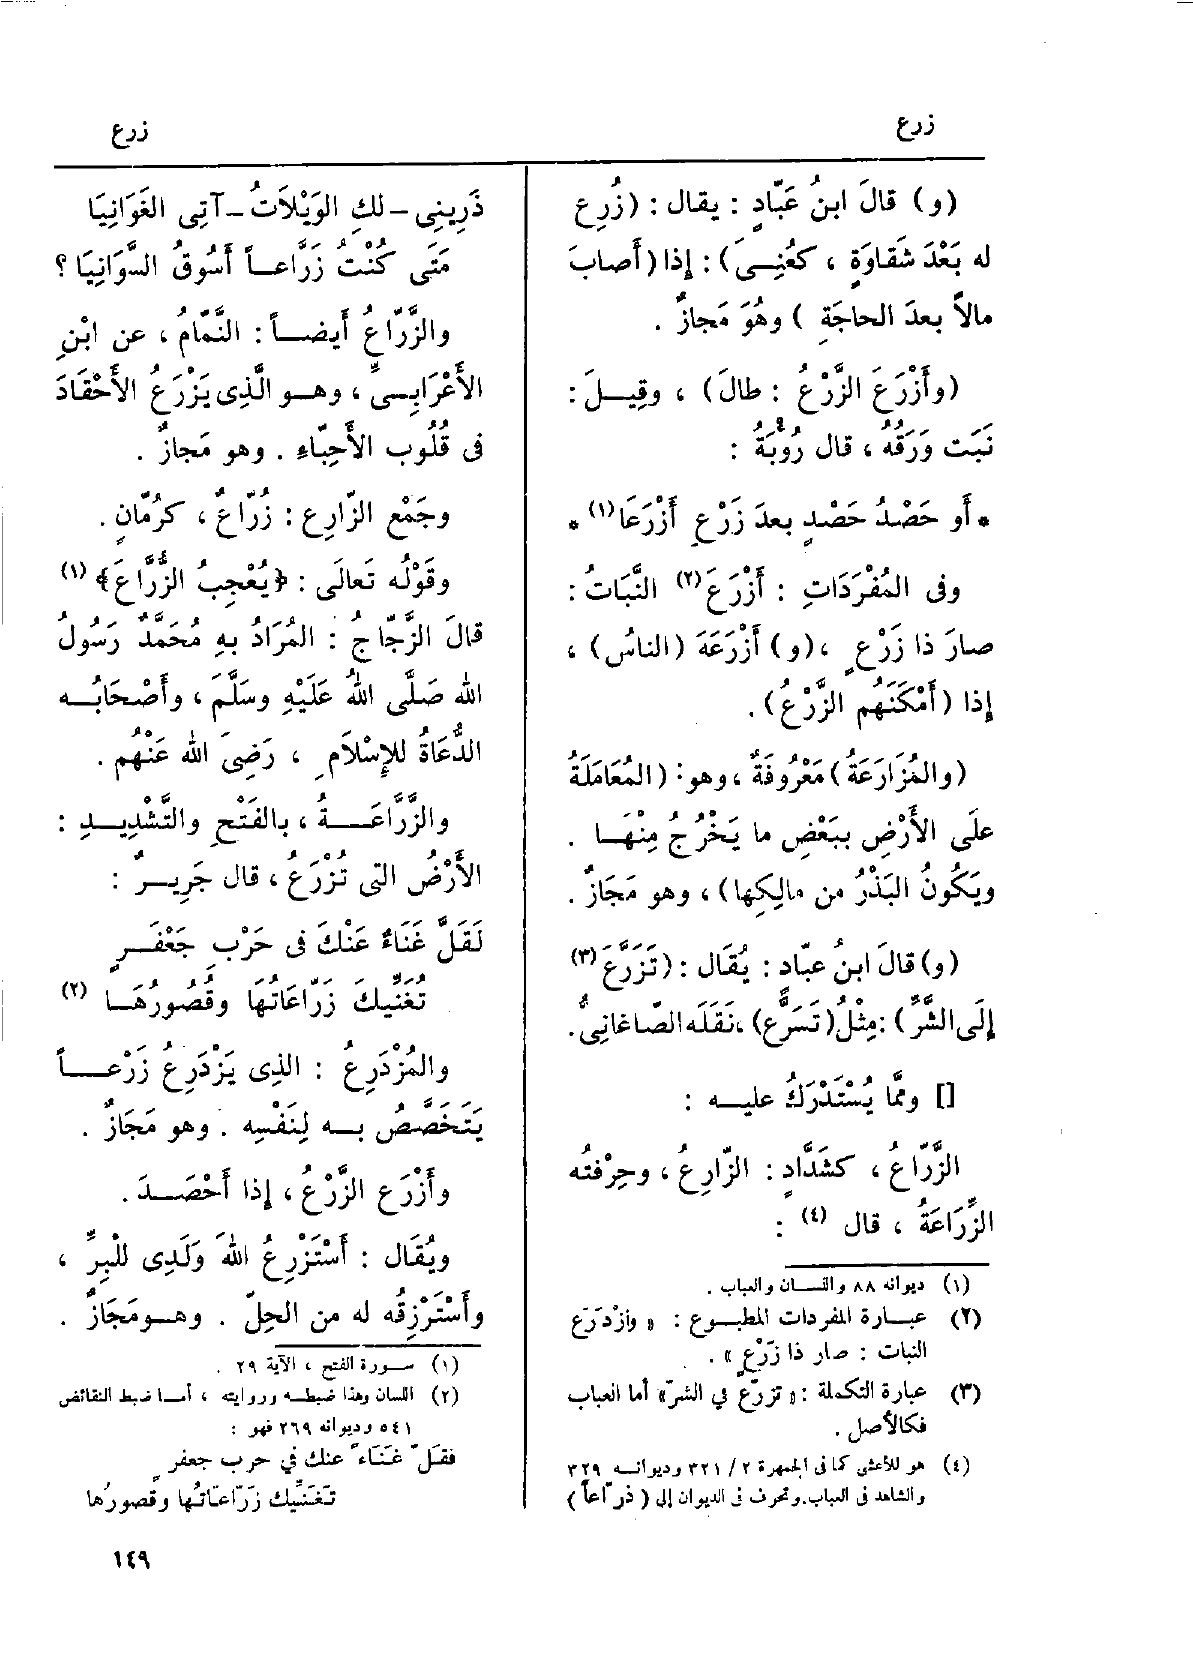 زرع
زرع
(و) قالَ ابنُ عَبّادٍ : يقال : (زُرِع
له بَعْدَ شَقاوَةٍ ، كعُنِــىَ) : إذا (أَصابَ
مالاً بعدَ الحاجَةِ ) وهُوَ مَجازٌ .
(وأَزْرَعَ الزَّرْعُ : طالَ) ، وقِيــلَ :
نَبَت وَرَقُهُ ، قال رُوبَةُ :
* أَو حَصْدُ حَصْدٍ بعدَ زَرْعٍ أَزْرَعَا (١) *
وفى المُفْرَدَاتِ : أَزْرَعَ (٢) النَّبَاتُ :
صارَ ذا زَرْعٍ ، (و) أَزْرَعَهَ (الناسُ) ،
إذا (أَمْكَنَهُم الزَّرْعُ) .
(والمُزَارَعَةُ) مَعْرُوفَةٌ ، وهو : (المُعَامَلَةُ
علَى الأَرْضِ ببَعْضِ ما يَخْرُجُ مِنْهَــا .
ويَكُونُ البَذْرُ من مالِكِها) ، وهو مَجَازٌ .
(و) قالَ ابنُ عبّاد : يُقَال : (تَزَرَّعَ (٣)
إلَى الشَّرِّ) : مِثْلُ (تَسَرَّع) ، نَقَلَه الصّاغانِىُّ .
[] وممّا يُسْتَدْرَكُ عليــه :
الزَّرّاعُ ، كشَدَّادٍ : الزّارِعُ ، وحِرْفَتُه
الزِّرَاعَةُ ، قال (٤) :
(١) ديوانه ٨٨ واللســان والعباب .
(٢) عبــارة المفردات المطبــوع : « وازْدَرَع
النبات : صار ذا زَرْعٍ » .
(٣) عبارة التكملة : « تزرّع في الشرّ» أما العباب
فكالأصل .
(٤) هو للأعشى كما فى الجمهرة ٢ / ٣٢١ وديوانــه ٣٢٩
والشاهد فى العباب. وتحرف فى الديوان إلى ( ذرّاعاً )
ذَرِينِى – لكِ الوَيْلاَتُ – آتِى الغَوَانِيَا
مَتَى كُنْتُ زَرَّاعــاً أَسُوقُ السَّوَانِيَا ؟
والزَّرّاعُ أَيضــاً : النَّمّامُ ، عن ابْنِ
الأَعْرَابِــىِّ ، وهــو الَّذِى يَزْرَعُ الأَحْقادَ
فى قُلُوب الأَحِبّاءِ . وهو مَجازٌ .
وجَمْع الزّارِع : زُرّاعٌ ، كرُمّانٍ .
وقَوْلُه تَعالَى : ﴿يُعْجِبُ الزُّرَّاعَ﴾ (١)
قالَ الزَّجّاجُ : المُرَادُ بهِ مُحَمَّدٌ رَسُولُ
الله صَلَّى اللهُ عَلَيْهِ وسَلَّمَ ، وأَصْحَابُــه
الدُّعَاةُ للإسْلاَمِ ، رَضِىَ الله عَنْهُم .
والزَّرَّاعَــةُ ، بالفَتْحِ والتَّشْدِيــدِ :
الأَرْضُ التى تُزْرَعُ ، قال جَرِيــرٌ :
لَقَلَّ غَنَاءٌ عَنْكَ فى حَرْبِ جَعْفَــرٍ
تُغَنِّيكَ زَرّاعَاتُهَا وقُصُورُهَــا (٢)
والمُزْدَرِعُ : الذى يَزْدَرِعُ زَرْعــاً
يَتَخَصَّصُ بــه لِنَفْسِه . وهو مَجَازٌ .
وأَزْرَع الزَّرْعُ ، إذا أَحْصَــدَ .
ويُقَال : أَسْتَزْرِعُ اللهَ وَلَدِى للْبِرِّ ،
وأَسْتَرْزِقُه له من الحِلّ . وهــو مَجَازٌ .
(١) ســورة الفتح ، الآية ٢٩ .
(٢) اللسان وهذا ضبطــه وروايته ، أمــا ضبط النقائض
٥٤١ وديوانه ٢٦٩ فهو :
فقَلَّ غَنَاءً عنك في حرب جعفرٍ
تَغَنِّيك زَرّاعاتُها وقصورُها
١٤٩